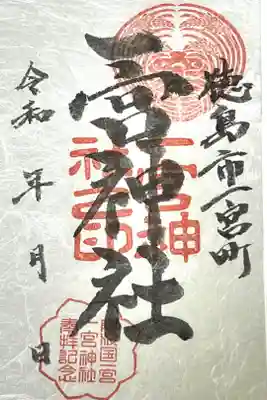 徳島市一宮町
一宮神社
令和 年 月 日
一宮神
社之印
阿波国一宮
一宮神社
奉拝記念